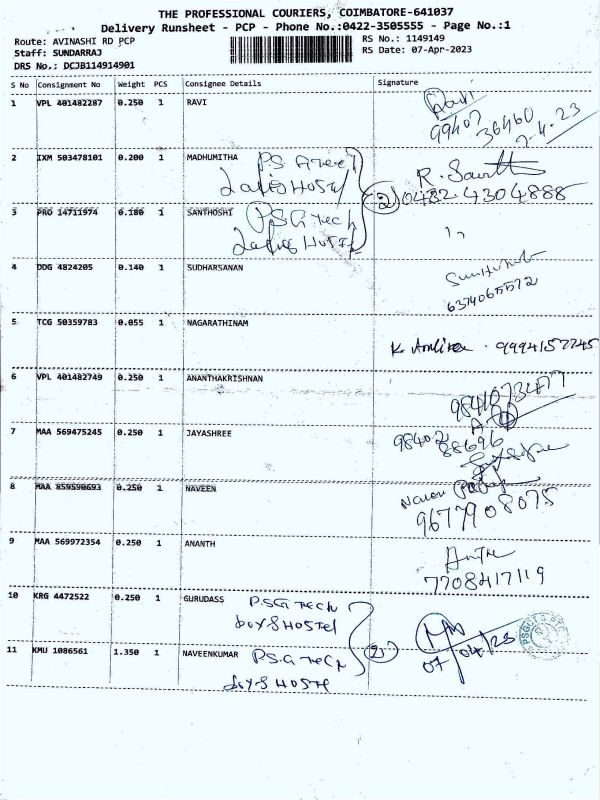 THE PROFESSIONAL COURIERS, COIMBATORE-641037
Delivery Runsheet - PCP - Phone No.:0422-3505555 - Page No.:1
Route: AVINASHI RD PCP RS No.: 1149149
Staff: SUNDARRAJ RS Date: 07-Apr-2023
DRS No.: DCJB114914901
S No Consignment No Weight PCS Consignee Details Signature
1 VPL 401482287 0.250 1 RAVI Ravi
99407 36460
7-4-23
2 IXM 503478101 0.200 1 MADHUMITHA PS G Tech
Ladies HOSTEl
R.
② 0432 4304888
3 PRO 14711974 0.180 1 SANTHOSHI PSG Tech
Ladies HOSTEl
4 DDG 4824205 0.140 1 SUDHARSANAN
6374065572
5 TCG 50359783 0.055 1 NAGARATHINAM K. 9994157745
6 VPL 401482749 0.250 1 ANANTHAKRISHNAN 9841073477
7 MAA 569475245 0.250 1 JAYASHREE 98402
88696
8 MAA 859590693 0.250 1 NAVEEN Naveen
9677908075
9 MAA 569972354 0.250 1 ANANTH
7708417119
10 KRG 4472522 0.250 1 GURUDASS P.SG Tech
boys HOSTel
11 KMU 1086561 1.350 1 NAVEENKUMAR P.S.G Tech
boys HOSTel
② 07/04/23